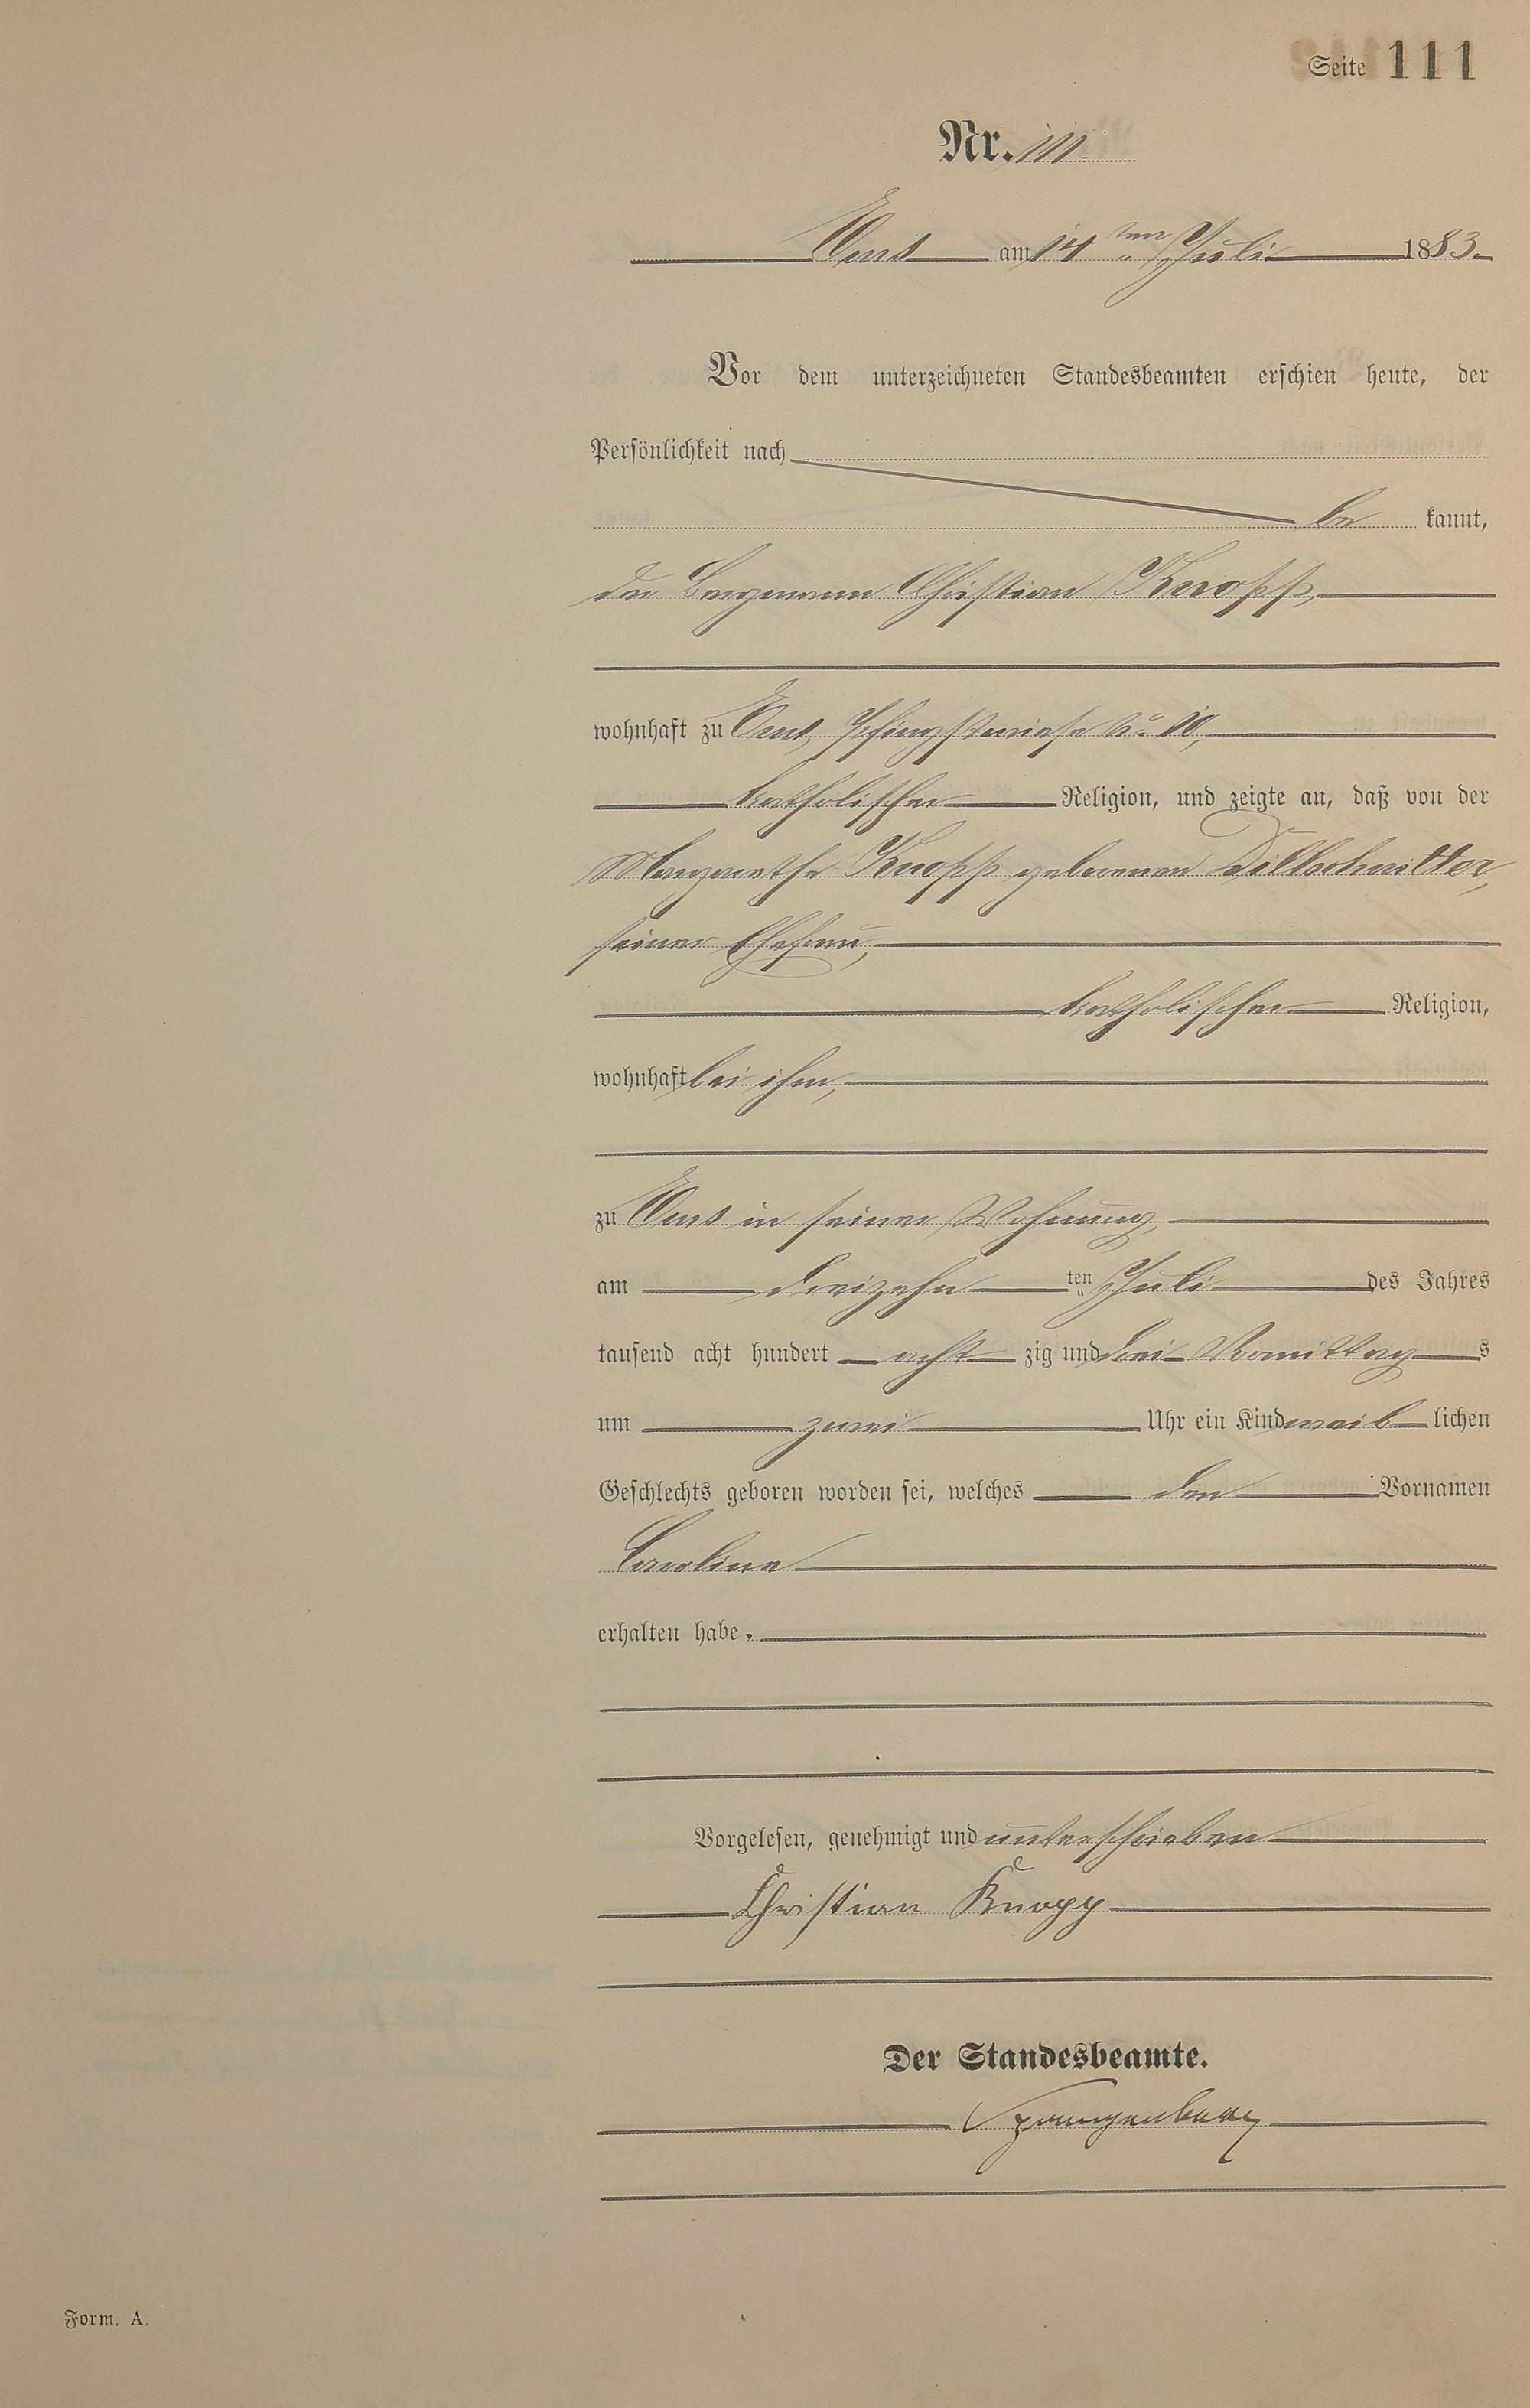 Seite 111
Nr. 111.
Ems am 14ten Juli 1883.
Vor dem unterzeichneten Standesbeamten erschien heute, der
Persönlichkeit nach
be kannt,
der Bergmann Christian Knopp,
wohnhaft zu Ems, Pfingstwiese No 10,
katholischer Religion, und zeigte an, daß von der
Margarethe Knopp geborenen
seiner Ehefrau,
katholischer Religion,
wohnhaft bei ihm,
zu Ems in seiner Wohnung,
am dreizehn ten Juli des Jahres
tausend acht hundert acht zig und drei Vormittag s
um zwei Uhr ein Kind weib lichen
Geschlechts geboren worden sei, welches den Vornamen
Caroline
erhalten habe.
Vorgelesen, genehmigt und unterschrieben
Christian Knopp
Der Standesbeamte.
Form. A.